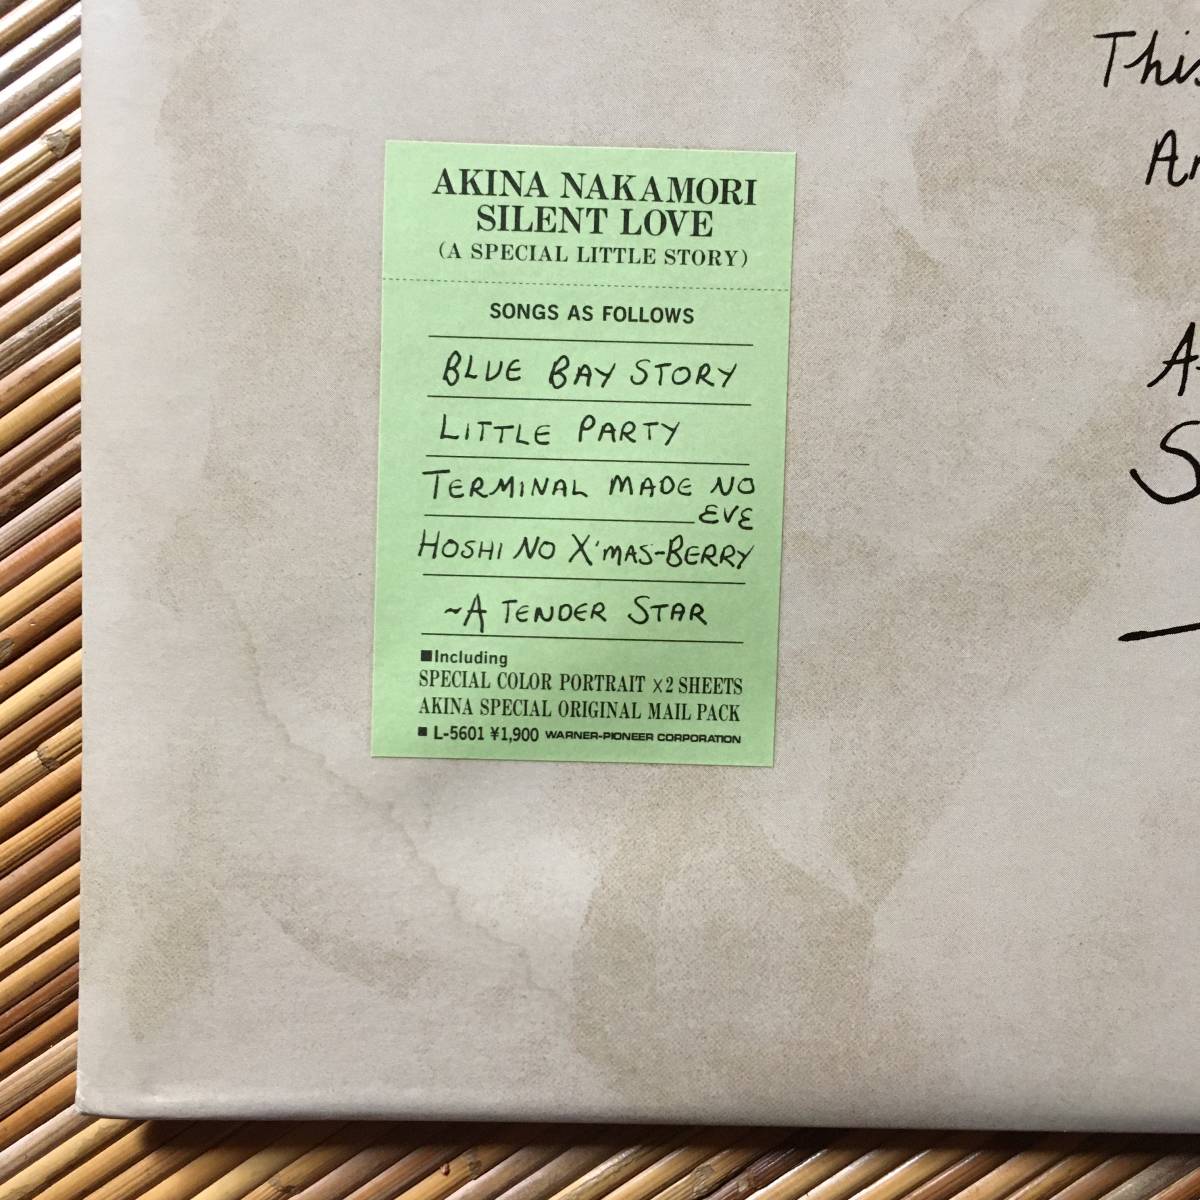 AKINA NAKAMORI
SILENT LOVE
(A SPECIAL LITTLE STORY)
SONGS AS FOLLOWS
BLUE BAY STORY
LITTLE PARTY
TERMINAL MADE NO
EVE
HOSHI NO X'MAS-BERRY
~A TENDER STAR
■Including
SPECIAL COLOR PORTRAIT ×2 SHEETS
AKINA SPECIAL ORIGINAL MAIL PACK
■ L-5601 ¥1,900 WARNER-PIONEER CORPORATION
This